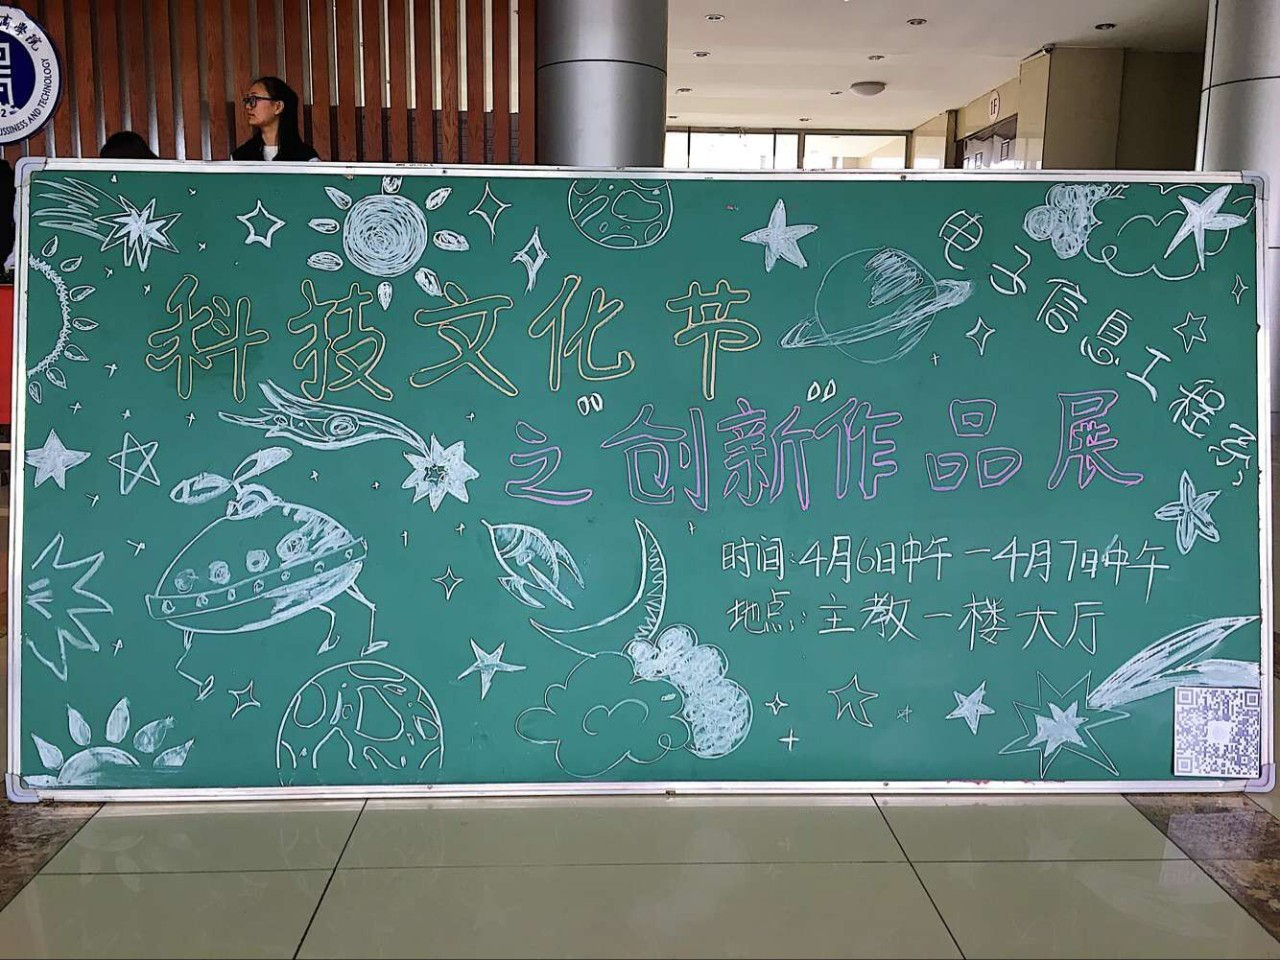 商学院
BUSSINESS AND TECHNOLOGY
1F
电子信息工程系
科技文化节
之"创新"作品展
时间:4月6日中午-4月7日中午
地点:主教一楼大厅